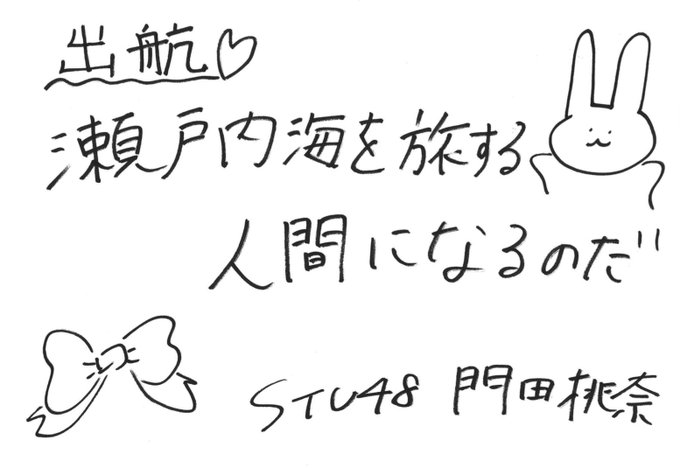 出航♡
瀬戸内海を旅する
人間になるのだ
STU48 門田桃奈